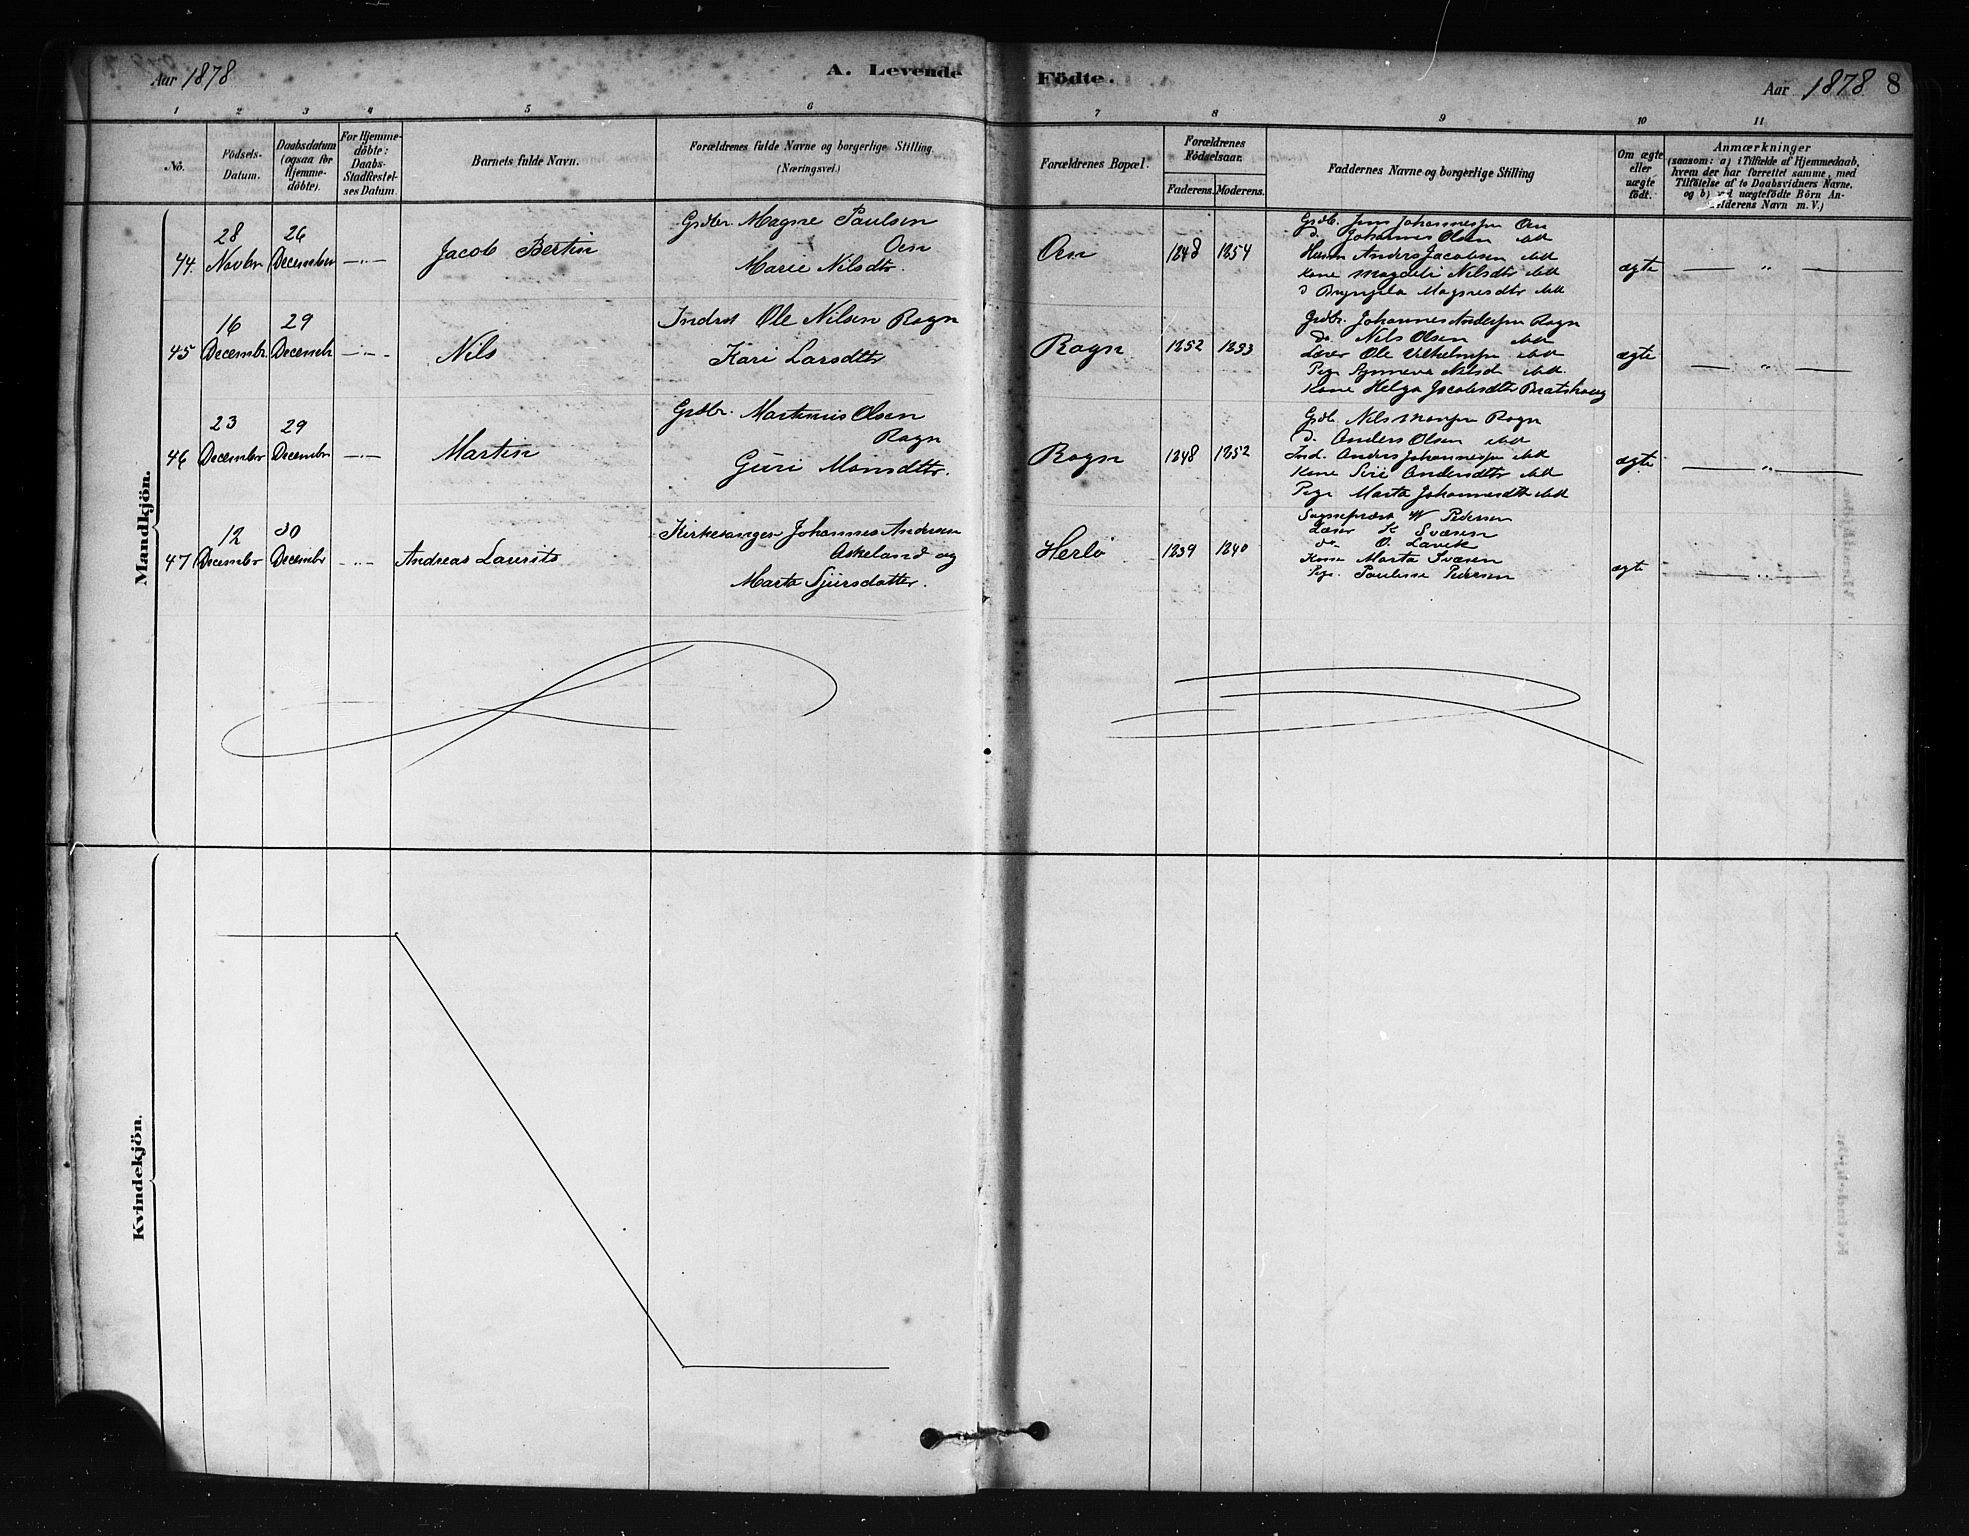 Aar 1878
A. Levende Födte.
Aar 1878 8
1 2 3 4 5 6 7 8 9 10 11
No.
Födsels-Datum.
Daabsdatum (ogsaa for Hjemme-döbte).
For Hjemme-döbte: Daabs-Stadfæstel-ses Datum.
Barnets fulde Navn.
Forældrenes fulde Navne og borgerlige Stilling.
(Næringsvei.)
Forældrenes Bopæl.
Forældrenes Födselsaar.
Faderens. Moderens.
Faddernes Navne og borgerlige Stilling
Om ægte eller uægte födt.
Anmærkninger
(saasom: a) i Tilfælde af Hjemmedaab,
hvem der har forrettet samme, med
Tilföielse af to Daabsvidners Navne,
og b) ved uægtefödte Börn An-
Mandkjön.
44.
28 Novbr
26 December
Jacob Bertin
Grdbr Magne Paulsen
Oen
Marie Nilsdtr.
Oen
1848 1854
Johannes Olsen
Anders Jacobsen
Kone Magdeli Nilsdtr
Magnesdtr
ægte
45
16 Decembr
29 Decembr
Nils
Indrst Ole Nilsen Rogn
Kari Larsdtr
Rogn
1852 1853
Grdbr. Johannes Andersen Rogn
do Nils Olsen
Lærer Ole
Pige Synneva Nilsd
Kone Helga Jacobsdtr
ægte
46
23 Decembr
29 Decembr
Martin
Grdbr. Martinus Olsen
Rogn
Guri Monsdtr.
Rogn
1848 1852
Grdb. Nils Monsen Rogn
d. Anders Olsen
Ind. Anders Johannessen
Kone Siri Andersdtr
Pige Marta Johannesdtr
ægte
47
12 Decembr
30 Decembr
Andreas Laurits
Kirkesanger Johannes Andersen
Askeland og
Marta Sjursdatter.
Herlö
1839 1840
Sognepræst W Pedersen
Lærer K Svæsen
do O. Lavik
Kone Marta Svæsen
Pige Pauline Pedersen
ægte
Kvindekjön.